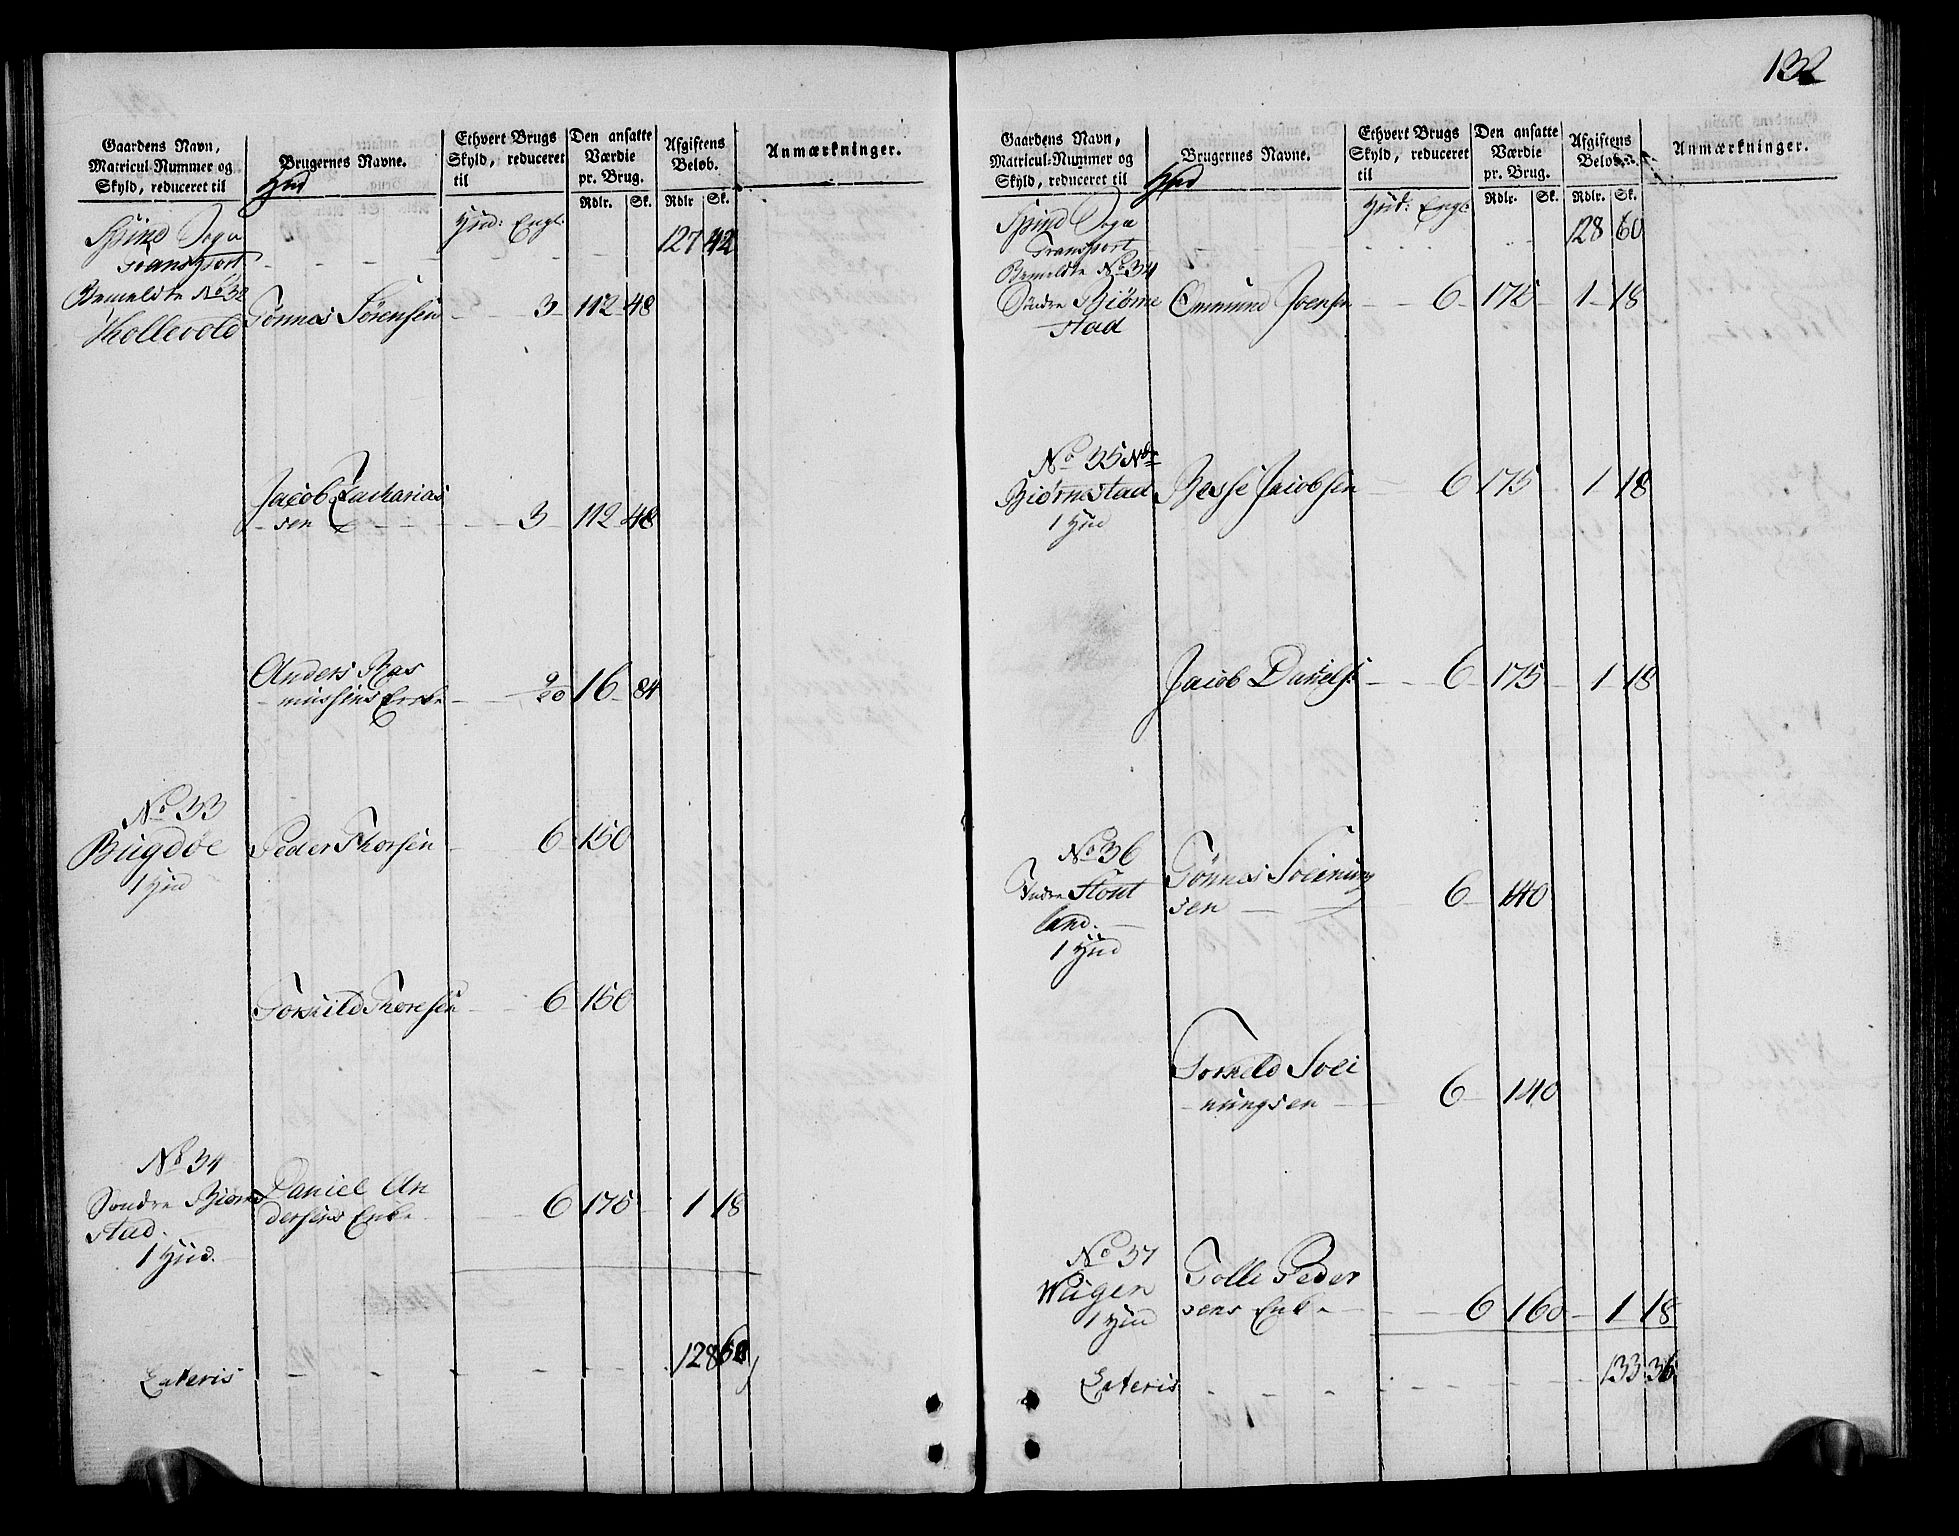 132
Gaardens Navn,
Matricul-Nummer og
Skyld, reduceret til
Hud
Brugernes Navne.
Ethvert Brugs
Skyld, reduceret
til
Den ansatte
Værdie
pr. Brug.
Rdlr. Sk.
Afgiftens
Beløb.
Rdlr Sk.
Anmærkninger.
Hud: Engl:
Spind Sogn
Transport - - - 127 42
Bemeldte No 32
Hollevold Tønnes Sørensen - 3 - 112 48
Jacob Zacharias
sen - - - 3 - 112 48
Anders Ras
mussens Enke - 9/20 16 - 84
No 33
Bugdøe Peder Thorsen - 6 - 150
1 Hud
Torkild Thoresen - 6 - 150
No 34
Søndre Biørne Daniel An
stad. dersens Enke - 6 - 175 - 1 18
1 Hud.
Lateris - - - 128 60
Gaardens Navn,
Matricul-Nummer og
Skyld, reduceret til
Hud
Brugernes Navne.
Ethvert Brugs
Skyld, reduceret
til
Den ansatte
Værdie
pr. Brug.
Rdlr. Sk.
Afgiftens
Beløb.
Rdlr. Sk.
Anmærkninger.
Hud: Engl:
Spind Sogn 128 60
Transport
Bemeldte No 34
Søndre Biørne Ommund Joensen - 6 - 175 - 1 - 18
stad
No 35 Ndr
Biørnestad Jacobsen - 6 175 - 1 - 18
1 Hud
Jacob Daniels: - 6 - 175 - 1 - 18
No 36 Tønnes Sveinung
Indre sen - 6 - 140
land.
1 Hud
Torkeld Svei
nungsen - 6 - 140
No 37 Tolle Peder
1 Hud sens Enke - 6 160 - 1 18
Lateris - - - 133 36